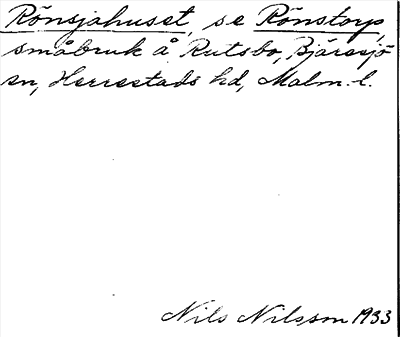 Rönsjahuset, se Rönstorp,
småbruk å Rutsbo, Bjäresjö
sn, Herrestads hd, Malm. l.
Nils Nilsson 1933